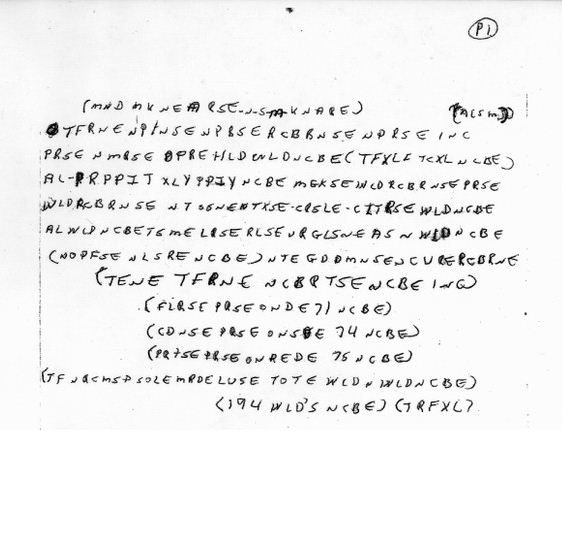 P1
(MND MKNEARSE-N-S-M-KNARE) (ALSM)
TFRNENPTNSENPBSERCBBRNSENPRSEINC
PRSENMRSEOPREHLDWLDNCBE(TFXLFTCXLNCBE)
AL-PRPPITXLYPPIYNCBEMGKSEWLDRCBRNSEPRSE
WLDRCBRNSENTOGNENTXSE-CRSLE-CITRSEWLDNCBE
ALWLDNCBETSMELRSERLSEURGLSNEASNWLDNCBE
(NOPFSENLSRENCBE)NTEGDDMNSENCURERCBRNE
(TENETFRNENCBRTSENCBEING)
(FLRSEPRSEONDE71NCBE)
(CDNSEPRSEONSDE74NCBE)
(PRTSEPRSEONREDE75NCBE)
(TFNRCMSPSOLEMRDELUSETOTEWLDNWLDNCBE)
(194WLD'SNCBE)(TRFXL)